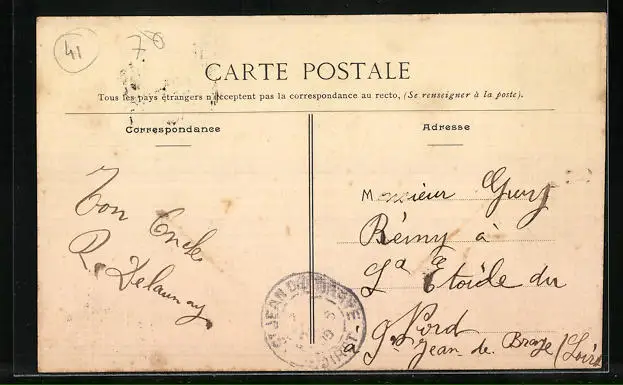 41
78
CARTE POSTALE
Tous les pays étrangers n'acceptent pas la correspondance au recto, (Se renseigner à la poste).
Correspondance
Ton Oncle
R. Delaunay
Adresse
Monsieur Guy
Rémy à
L'Etoile du
Nord
St Jean de Braye (Loiret
ST JEAN DE BRAYE
LOIRET